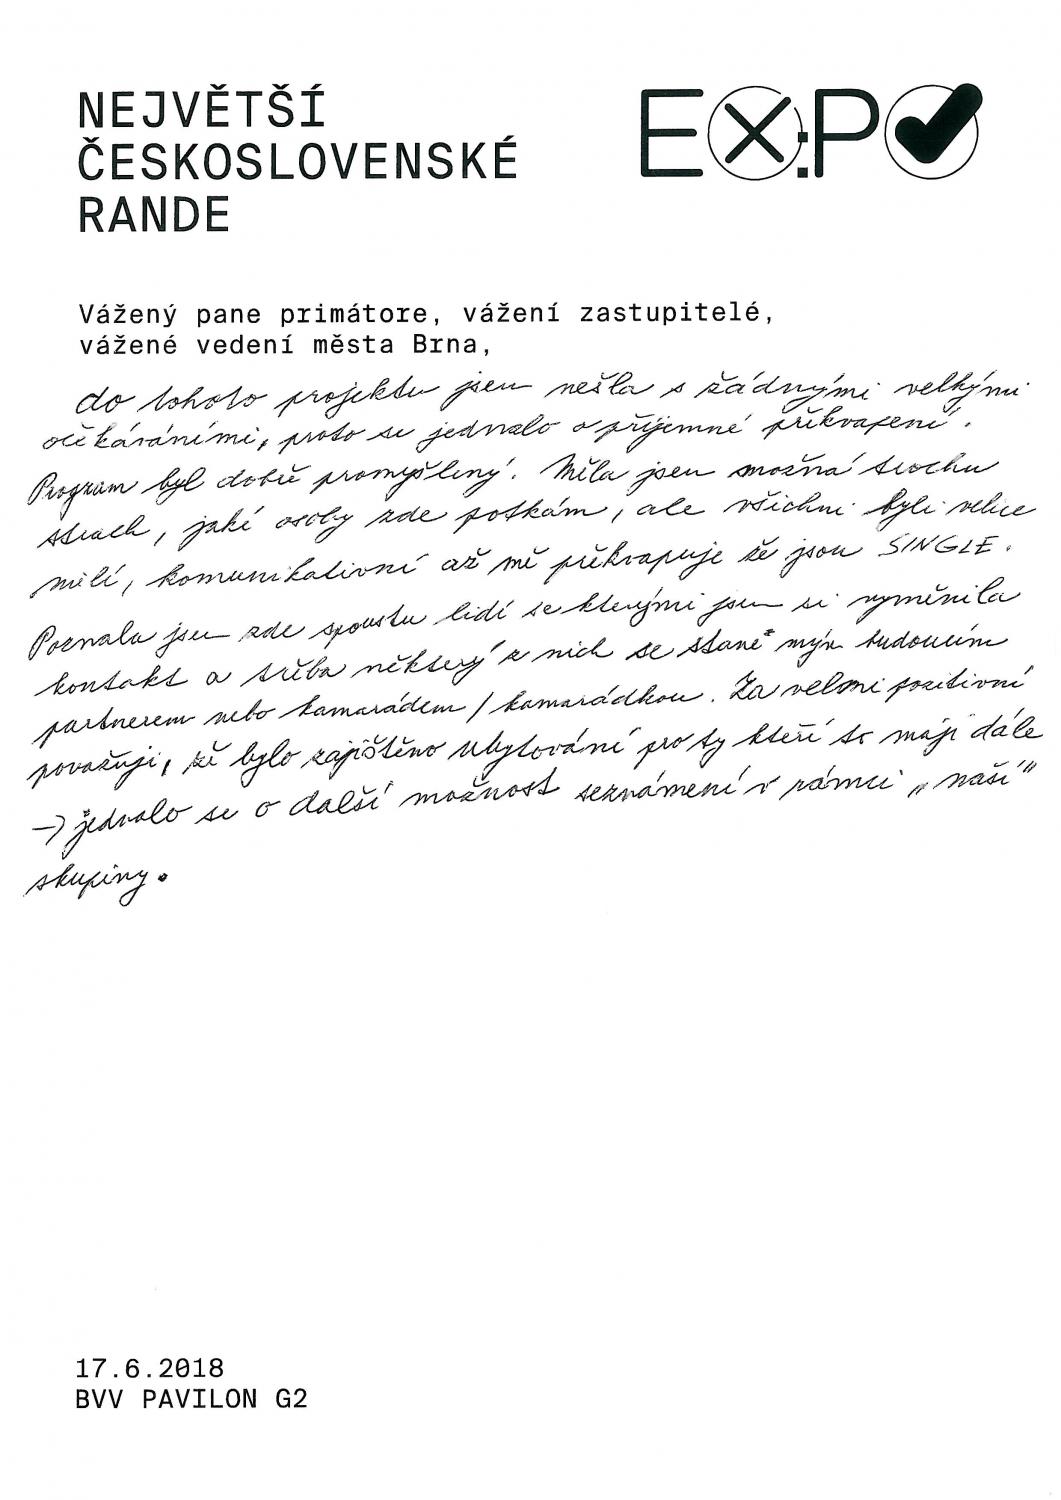 NEJVĚTŠÍ
ČESKOSLOVENSKÉ
RANDE
EX:PO
Vážený pane primátore, vážení zastupitelé,
vážené vedení města Brna,
do tohoto projektu jsem nešla s žádnými velkými
očekáváními, proto se jednalo o příjemné překvapení.
Program byl dobře promyšlený. Měla jsem možná trochu
strach, jaké osoby zde potkám, ale všichni byli velice
milí, komunikativní až mě překvapuje že jsou SINGLE.
Poznala jsem zde spoustu lidí se kterými jsem si vyměnila
kontakt a třeba některý z nich se stane mým budoucím
partnerem nebo kamarádem / kamarádkou. Za velmi pozitivní
považuji, že bylo zajištěno ubytování pro ty kteří to mají dále
→ jednalo se o další možnost seznámení v rámci „naší“
skupiny.
17.6.2018
BVV PAVILON G2